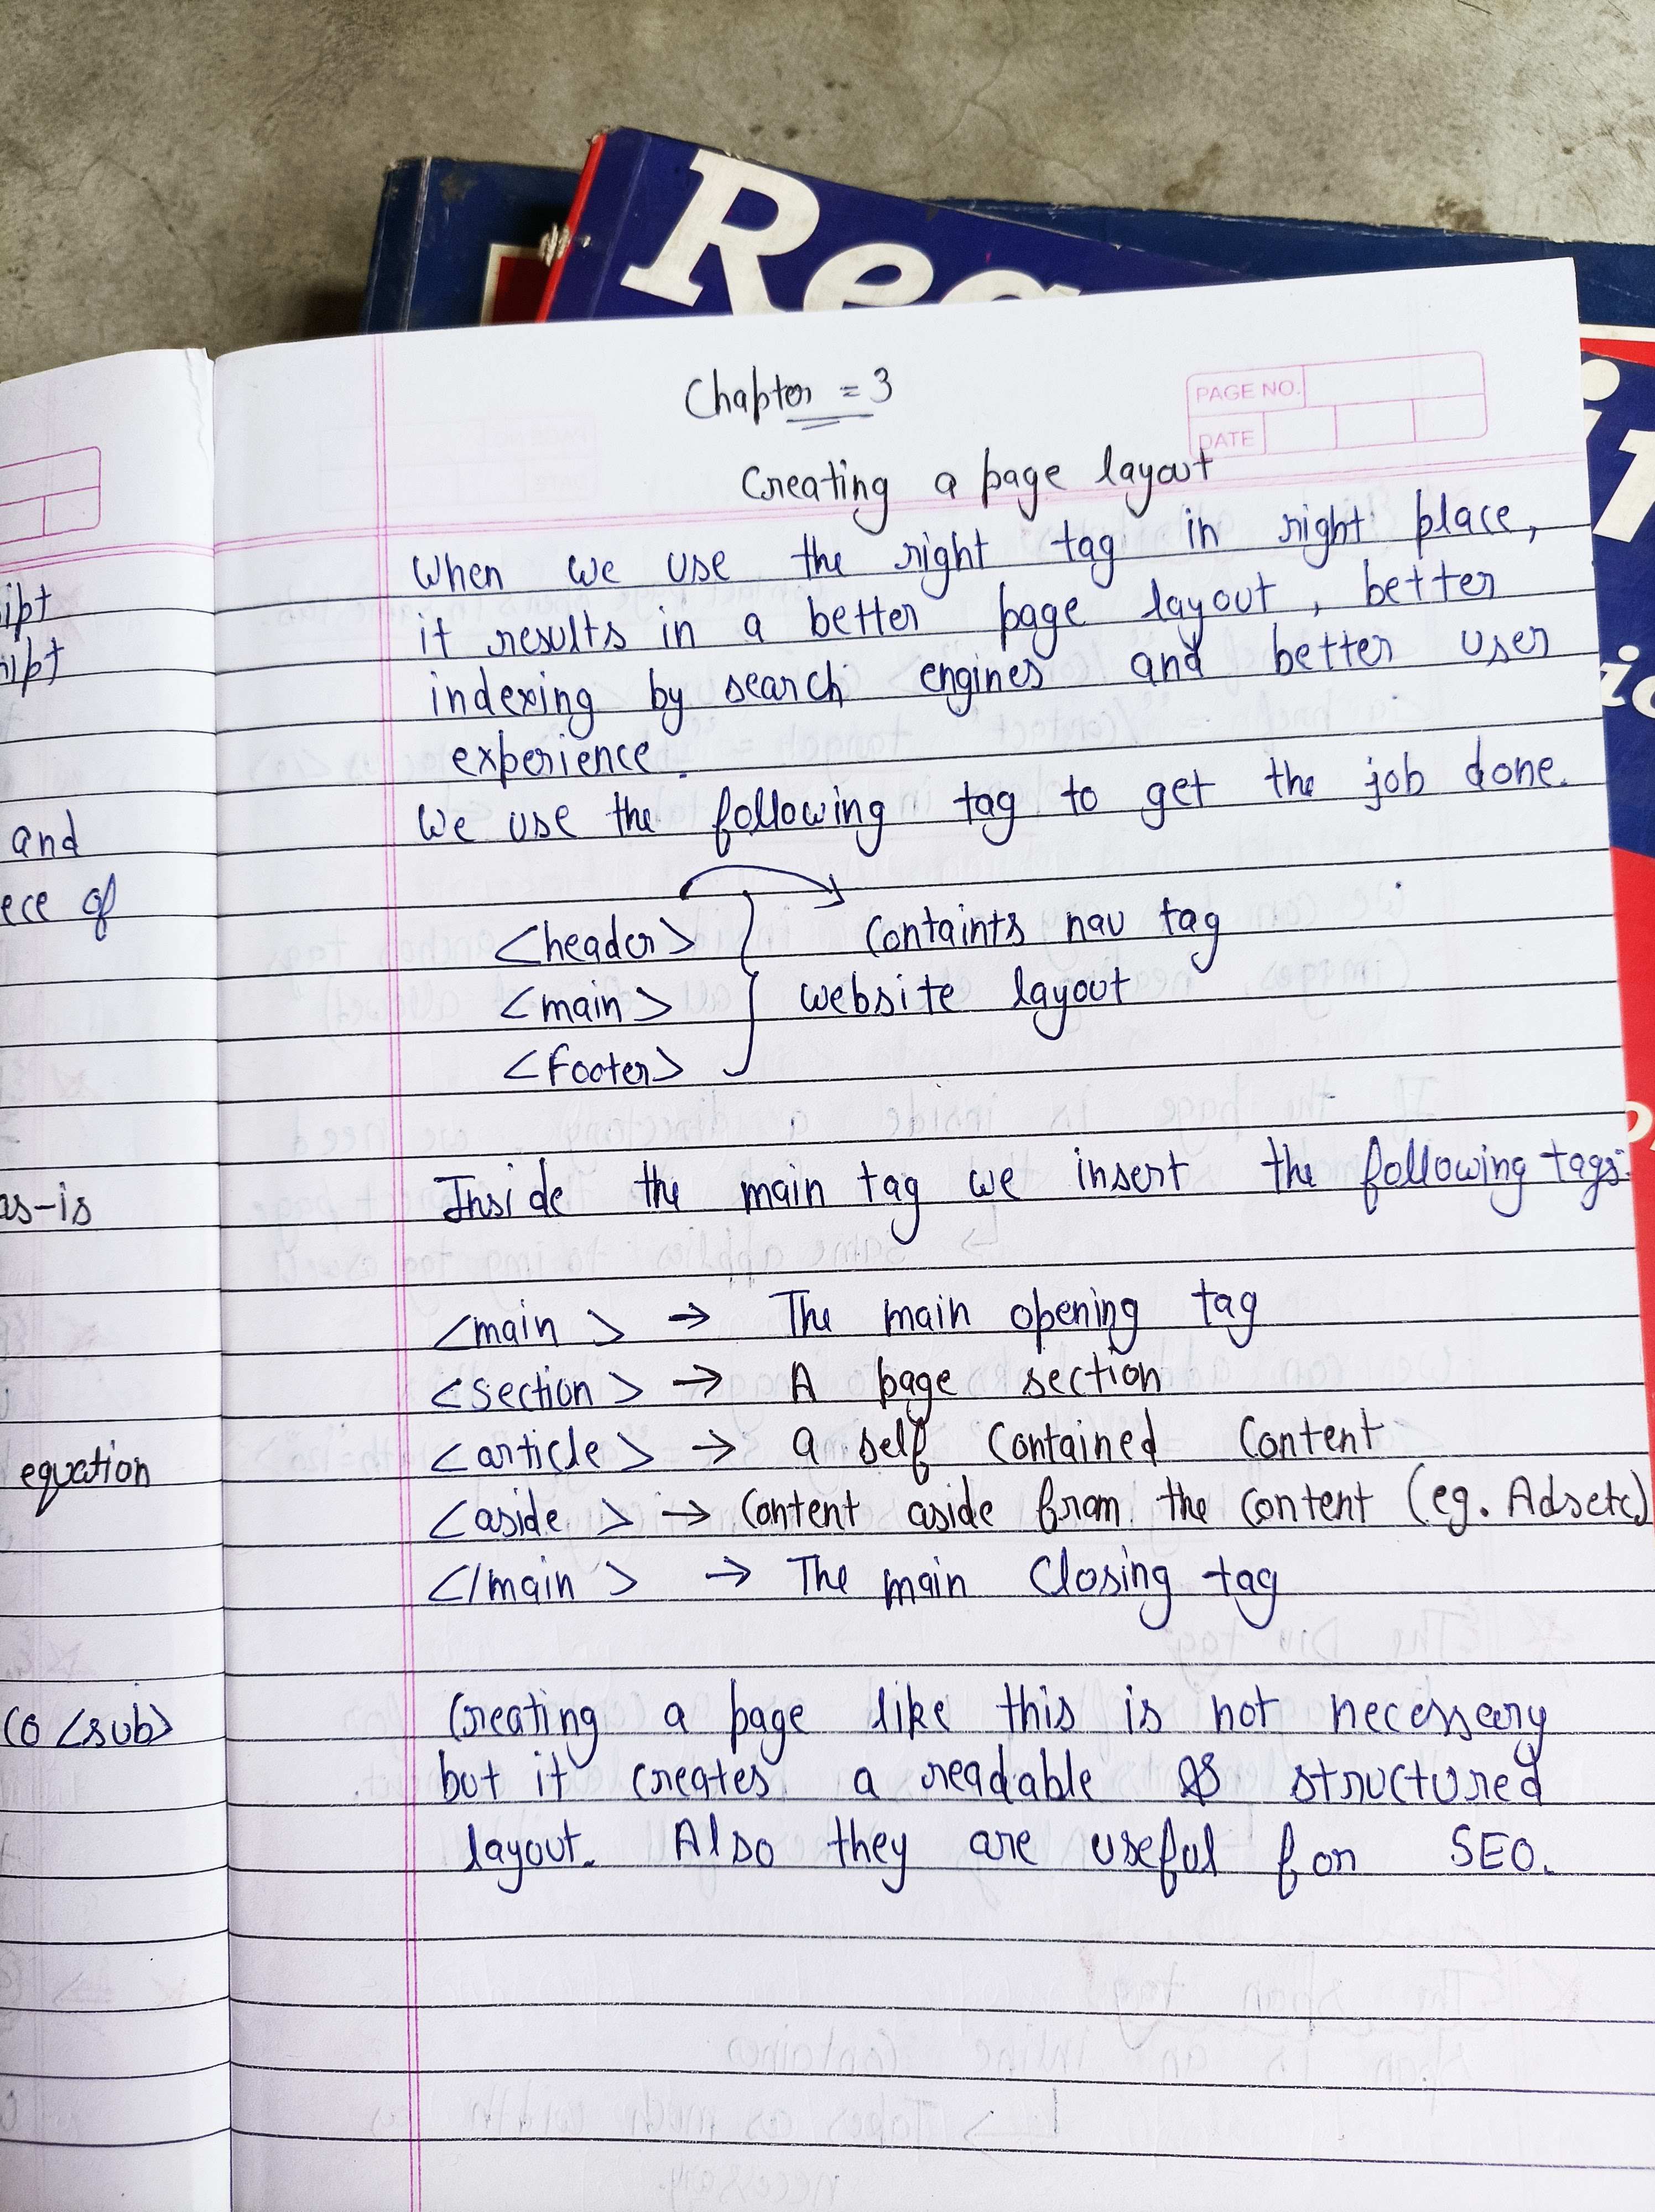 Reg
it
ipt
ript
and
ece of
as-is
equation
CO <sub>
Chapter = 3
PAGE NO.
DATE
Creating a page layout
When we use the right tag in right place,
it results in a better page layout, better
indexing by search engines and better user
experience.
We use the following tag to get the job done.
<header> Containts nav tag
<main> website layout
<footer>
Inside the main tag we insert the following tags:
<main> → The main opening tag
<section> → A page section
<article> → a self contained content
<aside> → content aside from the content (eg. Ads etc)
</main> → The main closing tag
Creating a page like this is not necessary
but it creates a readable & structured
layout. Also they are useful for SEO.